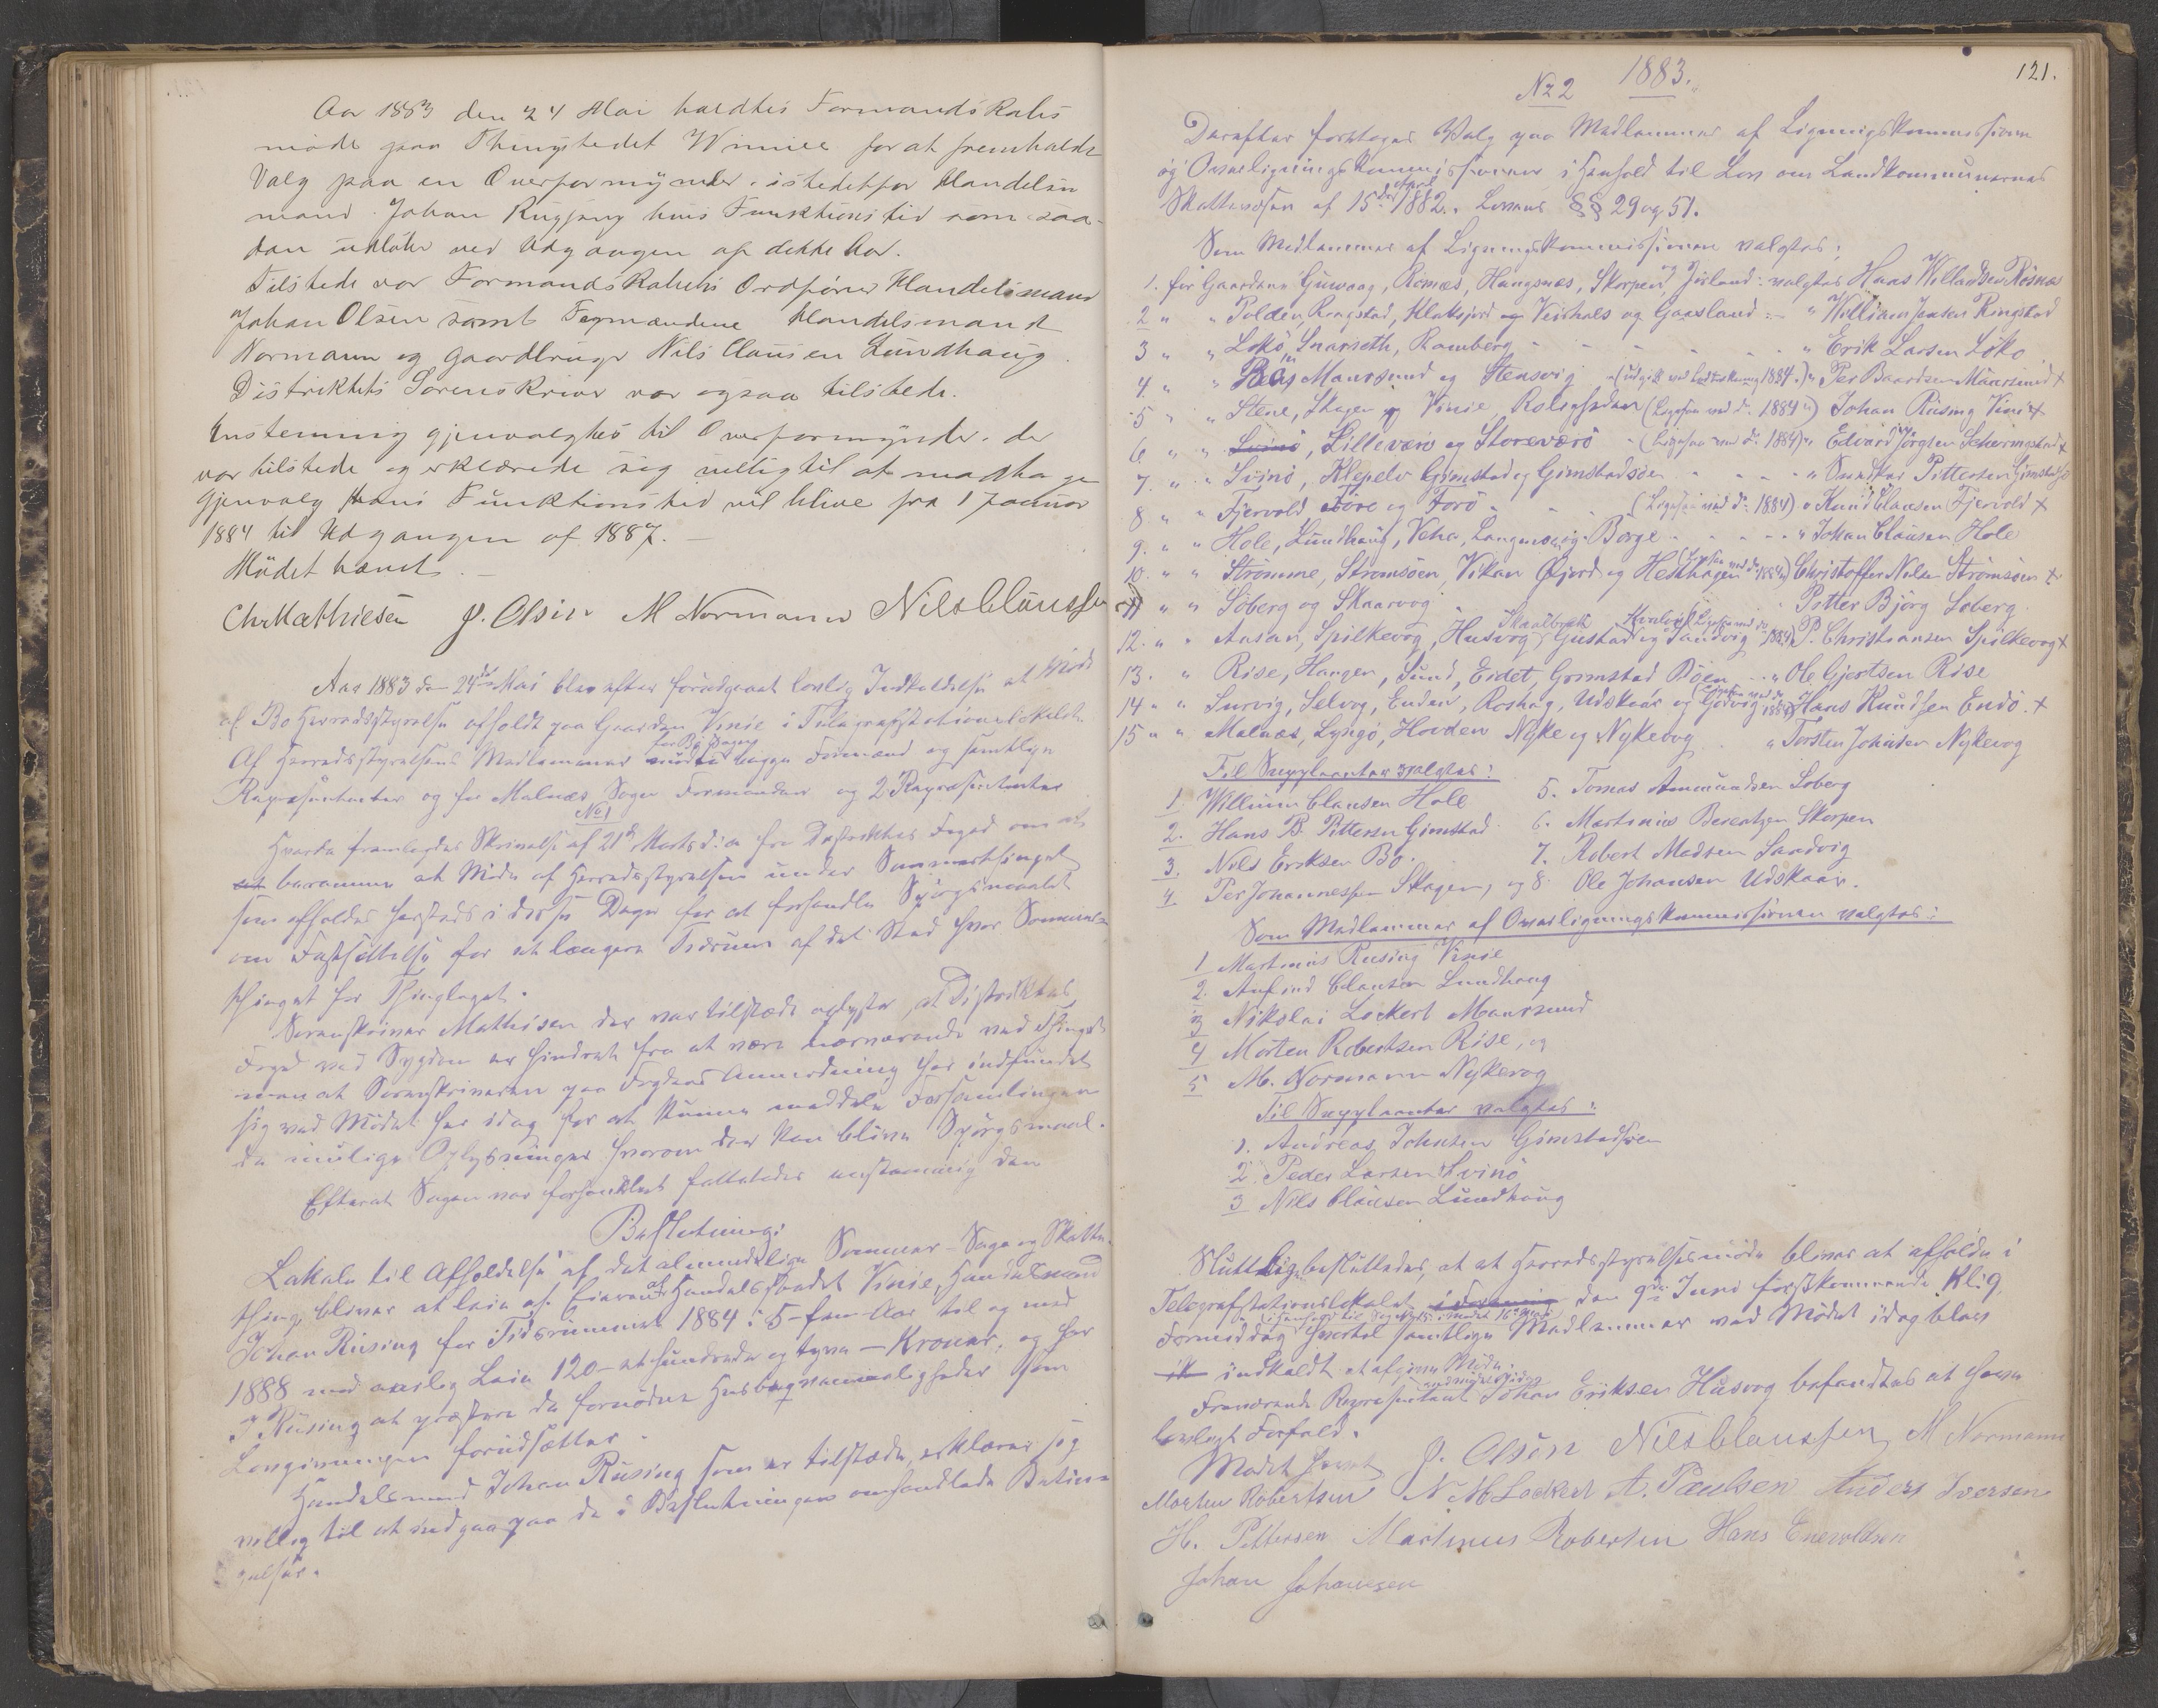 Aar 1883 den 24 Maiholdtes Formandskabs
møde paa Thingstedet Winnie for at fremholde
Valg paa en Overformynder istedetfor Handels
mand Johan Rusjng hvis Funktionstid som saa-
dan udløber ved Udgangen af dette Aar.
Tilstede var Formandskabets Ordfører Handelsmand
Johan Olsen samt Formændene Handelsmand
Normann og Gaardbruger Nils Clausen Lundhaug.
Distriktets Sorenskriver var ogsaa tilstede.
Enstemmig gjenvalgtes til Overformynder. der
var tilstede og erklærede sig villig til at modtage
Gjenvalg Hans Funktionstid vil blive fra 1 Januar
1884 til Udgangen af 1887. —
Mödet hævet. —
Chr Mathiesen J. Olsen M Normann Nils Claussen
Aar 1883 den 24de Mai blev efter forudgaaet lovlig Indkaldelse et Møde
af Bø Herredsstyrelse afholdt paa Gaarden Vinie i Telegrafstationslokalet.
Af Herredsstyrelsens Medlemmer mødte for Bø Sogn begge Formænd og samtlige
Repræsentanter og for Malnæs Sogn Formanden og 2 Repræsentanter
No 1
Hvorda fremlagdes Skrivelse af 21de Marts d: a fra Distriktets Foged om at
beramme et Møde af Herredsstyrelsen under Sommerthinget
som afholdes hersteds i disse Dage for at forhandle Spørgsmaalet
om Fastsættelse for et længere Tidsrum af det Sted hvor Sommer-
thinget for Thinglaget.
Sorenskriver Mathisen der var tilstæde oplyste, at Distriktets
Foged ved Sygdom er hindret fra at være nærværende ved Thinget
men at Sorenskriveren paa Fogdens Anmodning har indfundet
sig ved Mødet her idag for at kunne meddele Forsamlingen
de mulige Oplysninger hvorom der kan blive Spørgsmaal.
Efterat Sagen var forhandlet fattedes enstemmig den
Beslutning:
Lokale til Afholdelse af det almindelige Sommer- Sage og Skatte-
thing bliver at leie af Eieren af Handelsstedet Vinie, Handelsmand
Johan Rusing for Tidsrummet 1884 i 5- fem Aar til og med
1888 mod aarlig Leie 120- et hundrede og tyve - Kroner, og har
J Rusing at præstere de fornødne Husbeqvæmmeligheder som
Lovgivningen forudsætter.
Handelsmand Johan Rusing som er tilstæde, erklærer sig
villig til at indgaa paa de i Beslutningen omhandlede Betin-
gelser.
121.
No 2 1883.
Derefter foretoges Valg paa Medlemmer af Ligningskommissionen
og Overligningskommissionen i Henhold til Lov om Landkommunernes
Skattevæsen af 15de April 1882. Lovens §§ 29 og 51.
Som Medlemmer af Ligningskommissionen valgtes:
1. for Gaardene Guvaag, Risnæs, Haugsnæs, Skorpen og Jörland: valgtes Hans Willadsen Risnæs
2 " " Polden, Ringstad, Klaksjord og Veirhals og Gaasland: - " William Jensen Ringstad
3 " " Lokö Snarseth, Ramberg - - - - - " Erik Larsen Löko
4 " " Böe, Maursund og Stensvig - (udgik ved Lodtrækning 1884.) " Per Baardsen Maursund +
5 " " Stene, Skagen og Vinie, (Ligesaa ved do 1884) Johan Rüsing Vinie +
6 " " Svinö, Lilleværö og Storeværö - (Ligesaa ved do 1884) " Edvard Jørgsen +
7. " " Svinö, Klepelv Gimstad og Gimstadsöen - - - " Pittersen Gimstad
8 " " Fjervold Före og Forö - - - (Ligesaa ved do 1884) " Knud Clausen Fjervold +
9. " " Hole, Lundhaug, Veha, og Borge - - - - " Johan Clausen Hole
10. " " Strömme, Strömsöen, Vikan Øjord og (Ligesaa ved do 1884) Christoffer Nilsen Strömsöen +
11 " " Söberg og Skaarvog " Petter Björg Söberg
12. " " Aasan, Spilkevog, Husvog, Skaalbrek Gustad og Sandvig Kvalvig (Ligesaa ved do 1884) P. Christiansen Spilkevog +
13. " Rise, Haugen, Sund, Eidet, Grimstad Röen - - " Ole Gjertsen Rise
14 " " Survig, Selvog, Enden, Roshag, Udskaar og (Ligesaa ved do 1884) Hans Knudsen Endö. +
15 " " Malnæs, Lyngö, Hovden Nyke og Nykevog " Torsten Johnsen Nykevog
Til Suppleanter valgtes:
1 Willium Clausen Holl 5. Tomas Ammundsen Soberg
2. Hans B. Pettersen Gimstad 6. Martinius Berentzen Skorpen
3. Nils Eriksen Bö. 7. Robert Madsen Sandvig
4 Per Johannessen Skagen, og 8. Ole Johansen Udskaar.
Som Medlemmer af Overligningskommissionen valgtes:
1 Martinus Rusing Vinie
2. Anfind Clausen Lundhaug
3 Nikolai Lockert Maursund
4 Morten Robertsen Rise, og
5 M. Normann Nykevog
Til Suppleanter valgtes:
1. Andreas Johnsen Gimstadsöen
2 Peder Larsen Svinö
3 Nils Clausen Lundhaug
Sluttelig besluttedes, at et Herredsstyrelsesmöde bliver at afholde i
Telegrafstationslokalet den 9de Juni förstkommende Kl. 9
Formiddag hvortil samtlige Medlemmer ved Mødet idag blev
indkaldt
Fraværende Repræsentant Johan Eriksen Husvog befandtes at have
lovligt Forfald.
Mødet hævet J. Olsen Nils Claussen M Normann
Morten Robertsen N M Lockert A. Paulsen Anders Iversen
H. Pettersen Martinus Robertsen Hans Enevoldsen
Johan Johansen